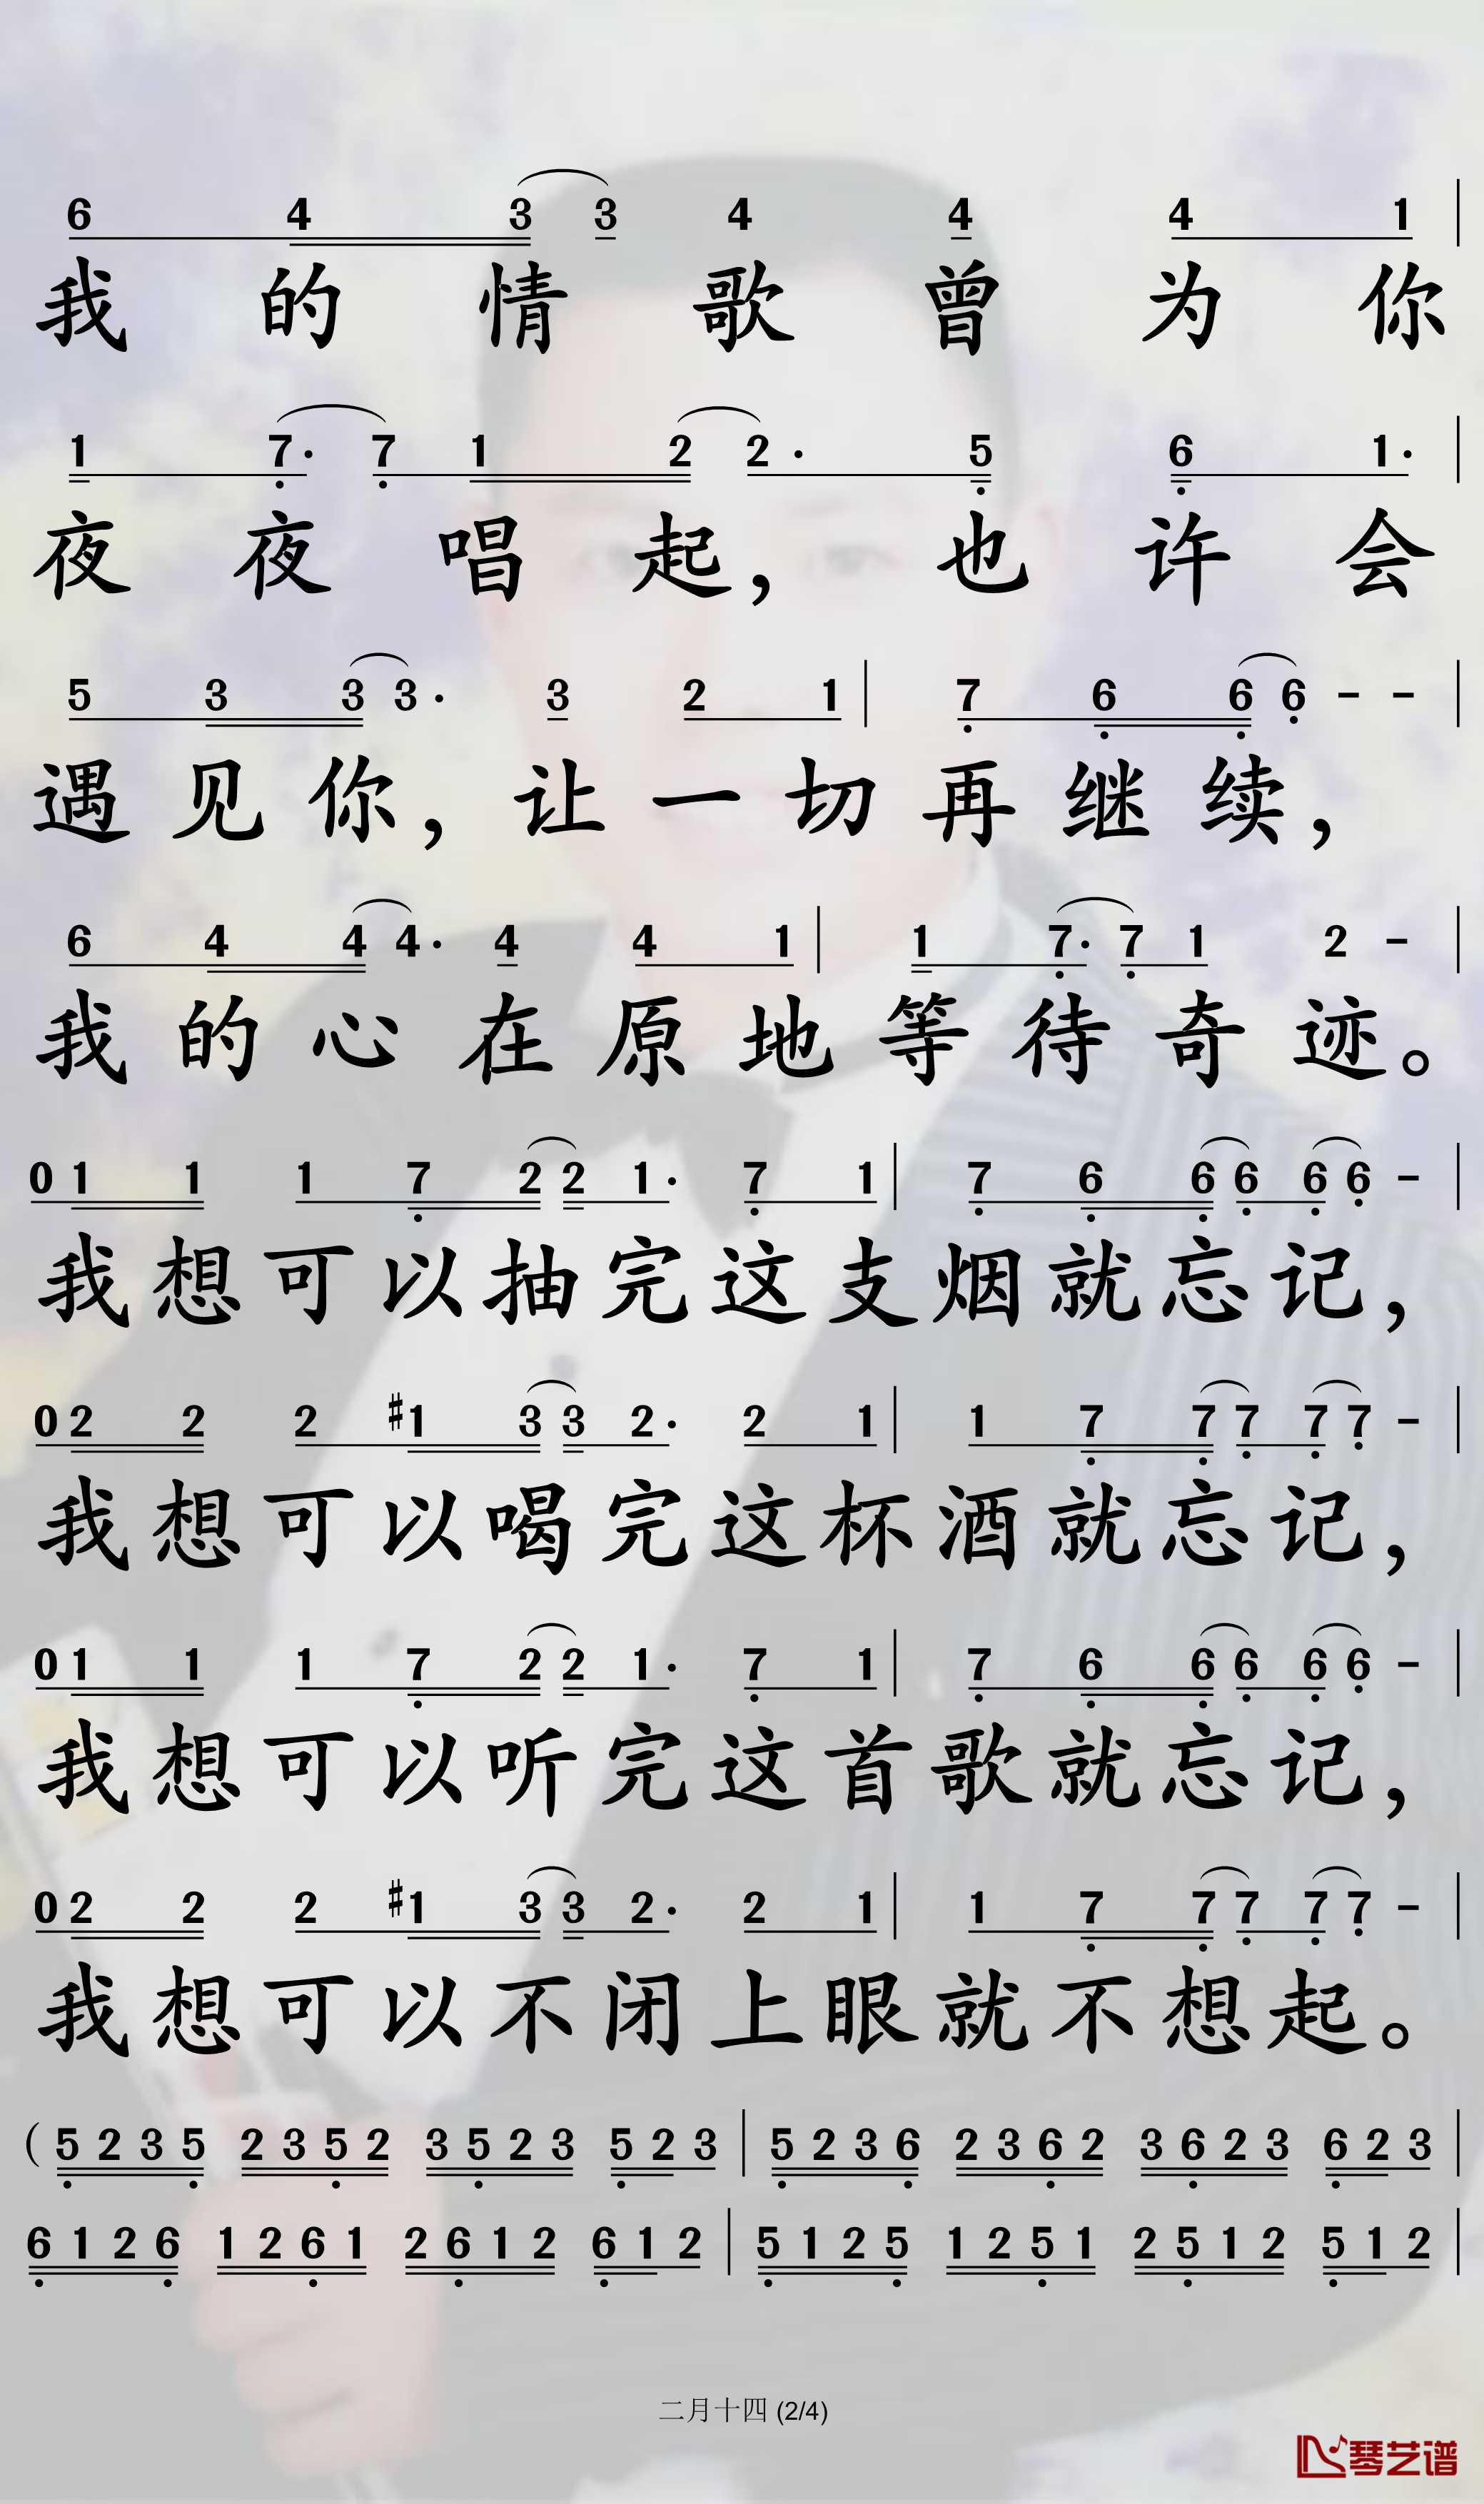 6 4 3 3 4 4 4 1 |
我的情歌曾为你
1 7· 7 1 2 2· 5 6 1· |
夜夜唱起，也许会
5 3 3 3· 3 2 1 | 7 6 6 6 - - |
遇见你，让一切再继续，
6 4 4 4· 4 4 1 | 1 7· 7 1 2 - |
我的心在原地等待奇迹。
0 1 1 1 7 2 2 1· 7 1 | 7 6 6 6 6 6 - |
我想可以抽完这支烟就忘记，
0 2 2 2 #1 3 3 2· 2 1 | 1 7 7 7 7 7 - |
我想可以喝完这杯酒就忘记，
0 1 1 1 7 2 2 1· 7 1 | 7 6 6 6 6 6 - |
我想可以听完这首歌就忘记，
0 2 2 2 #1 3 3 2· 2 1 | 1 7 7 7 7 7 - |
我想可以不闭上眼就不想起。
( 5 2 3 5 2 3 5 2 3 5 2 3 5 2 3 | 5 2 3 6 2 3 6 2 3 6 2 3 6 2 3 |
6 1 2 6 1 2 6 1 2 6 1 2 6 1 2 | 5 1 2 5 1 2 5 1 2 5 1 2 5 1 2 |
二月十四 (2/4)
琴艺谱